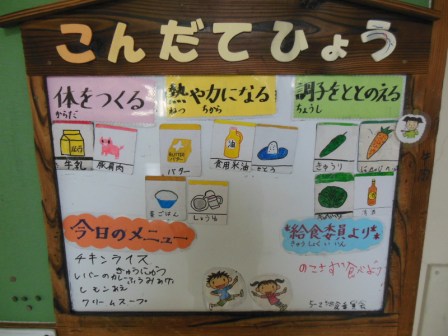 こんだてひょう
体をつくる
からだ
熱や力になる
ねつ ちから
調子をととのえる
ちょうし
牛乳
豚肉
バター
食用米油
きゅうり
麦ごはん
しょうゆ
今日のメニュー
チキンライス
レバーのカレー
レモンあえ
クリームスープ
給食委員より
きゅうしょく いいん
のこさず食べよう